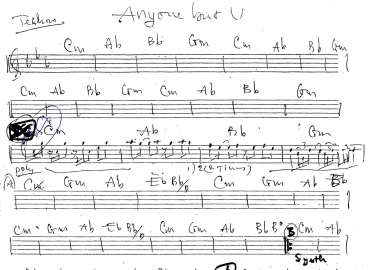 Techno
Anyone but U
Cm Ab Bb Gm Cm Ab Bb Gm
Cm Ab Bb Gm Cm Ab Bb Gm
Cm Ab Bb Gm
poly
A Cm Gm Ab Eb Bb/D Cm Gm Ab Bb
Cm Gm Ab Eb Bb/D Cm Gm Ab Bb B° B Cm Ab
Synth